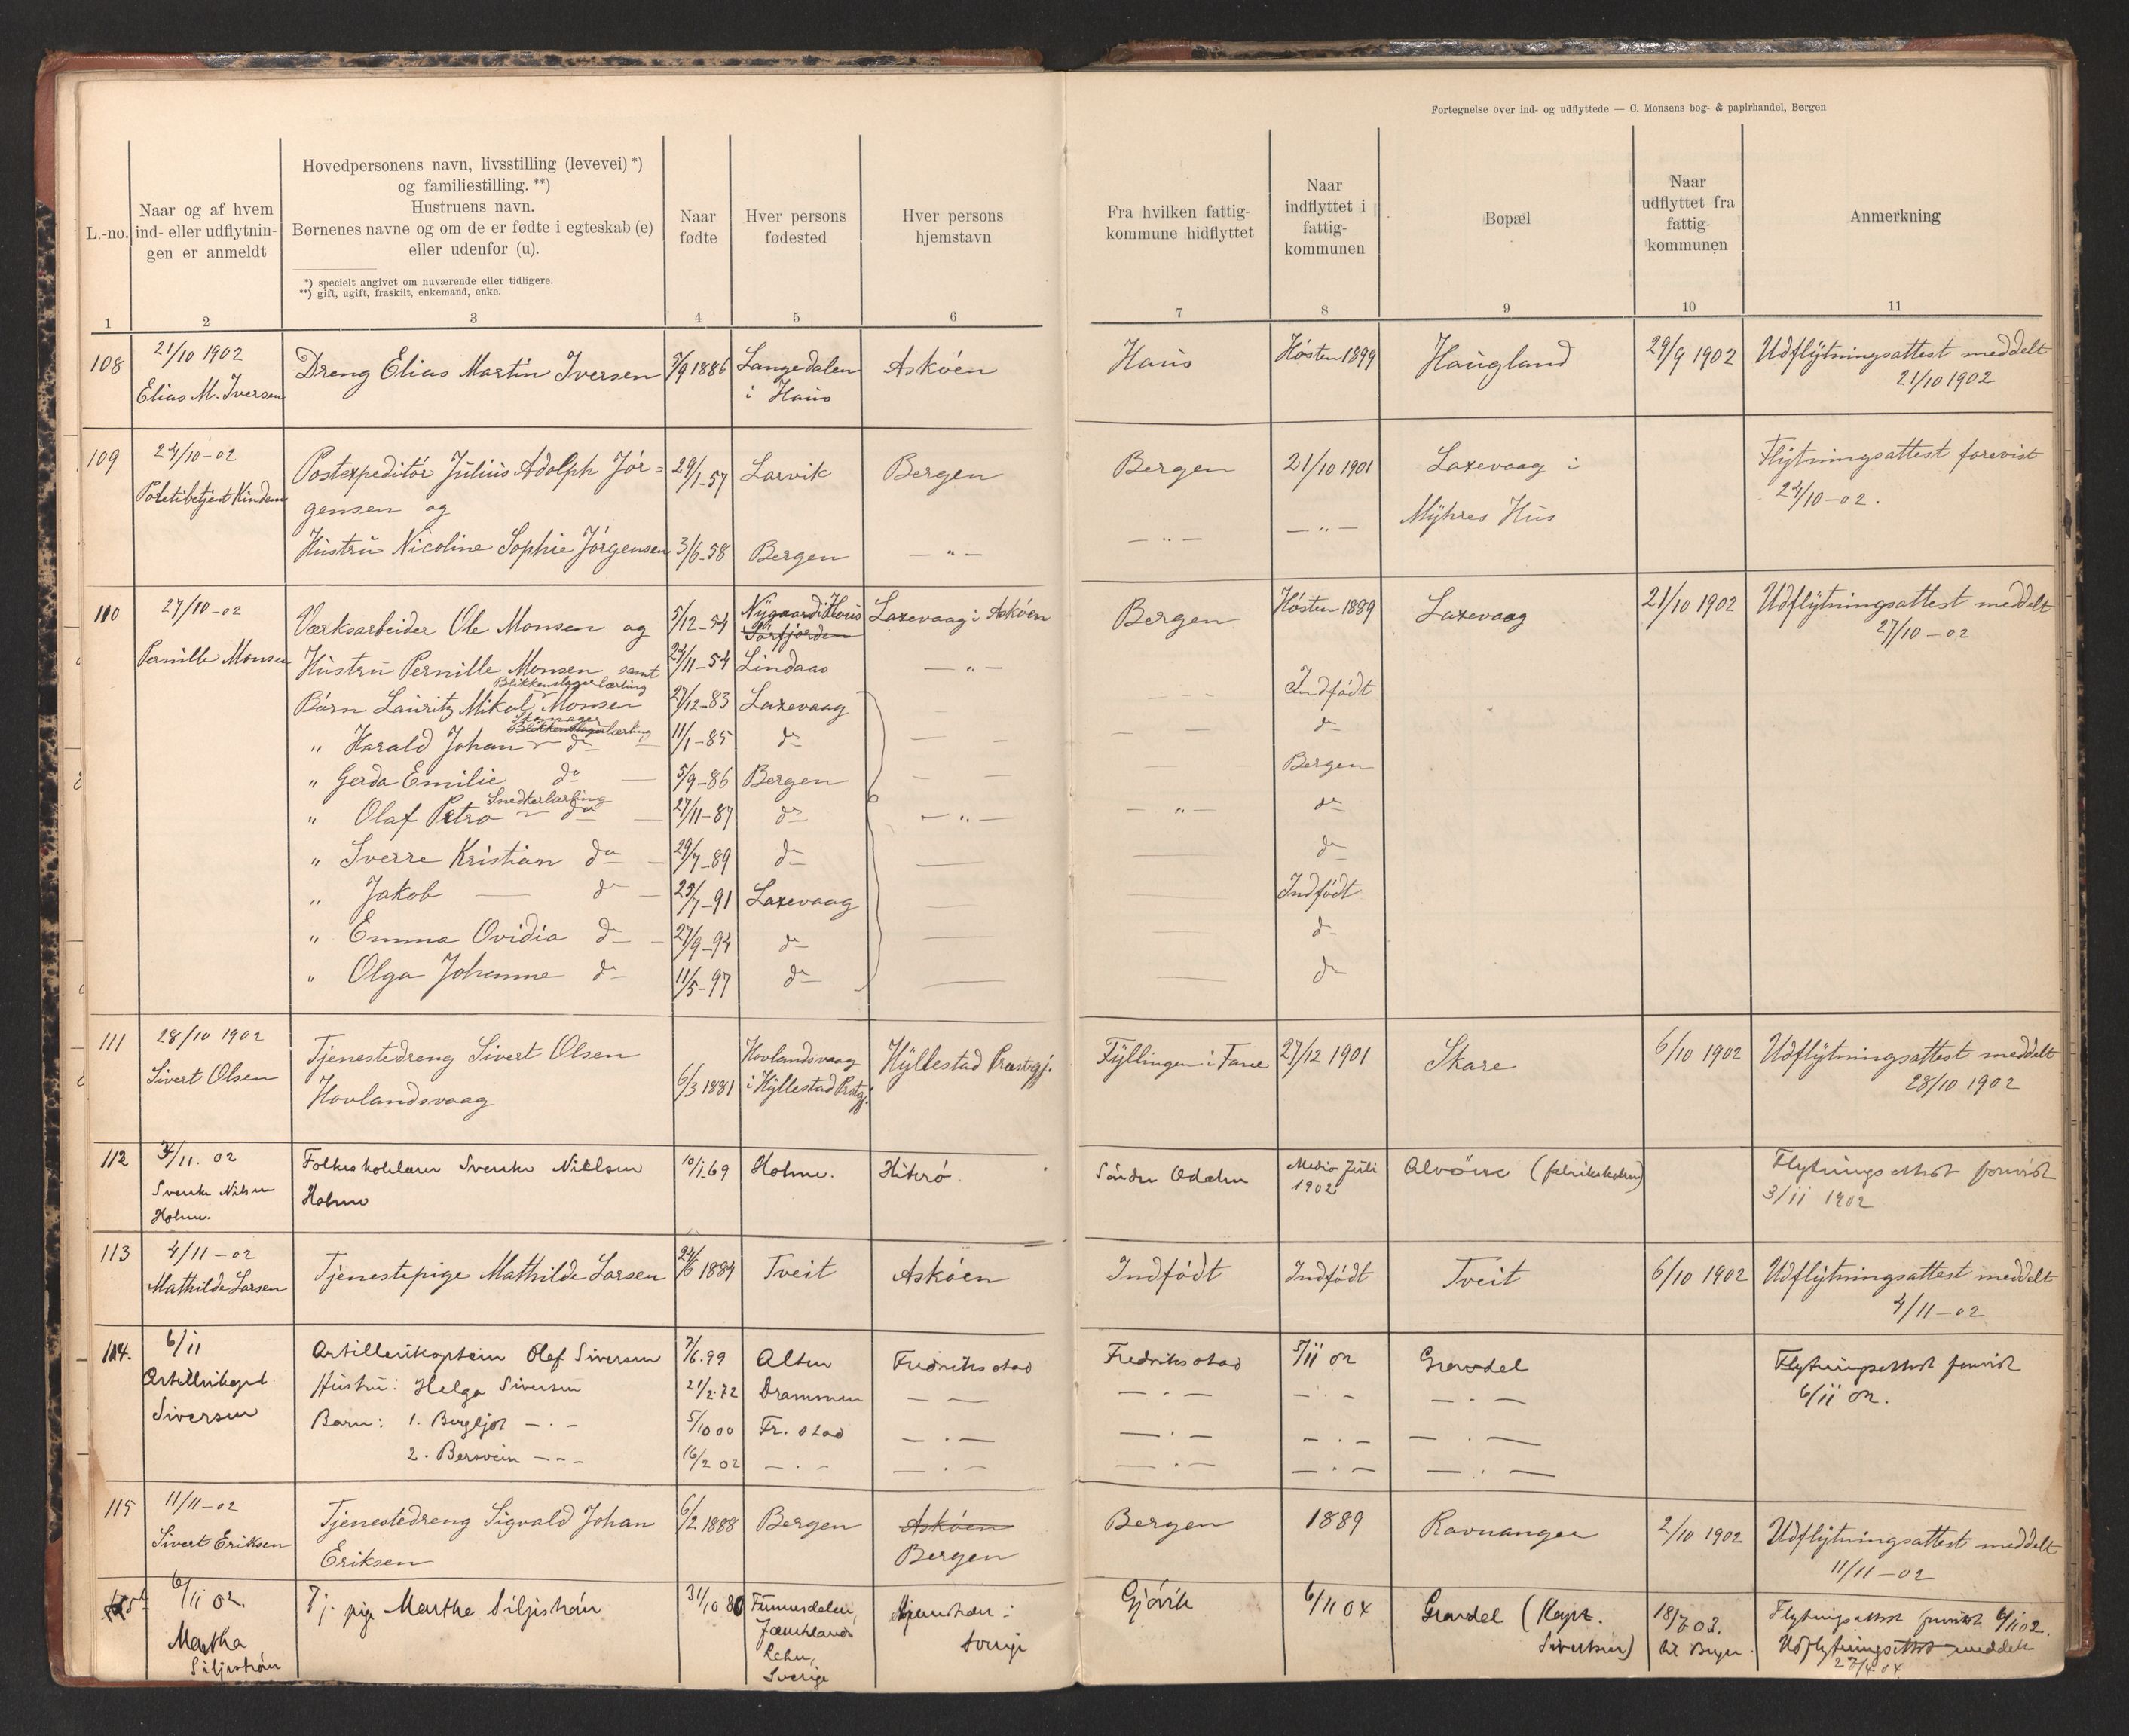 Fortegnelse over ind- og udflyttede — C. Monsens bog- & papirhandel, Bergen
L.-no.
Naar og af hvem
ind- eller udflytnin-
gen er anmeldt
Hovedpersonens navn, livsstilling (levevei) *)
og familiestilling. **)
Hustruens navn.
Børnenes navne og om de er fødte i egteskab (e)
eller udenfor (u).
*) specielt angivet om nuværende eller tidligere.
**) gift, ugift, fraskilt, enkemand, enke.
Naar
fødte
Hver persons
fødested
Hver persons
hjemstavn
Fra hvilken fattig-
kommune hidflyttet
Naar
indflyttet i
fattig-
kommunen
Bopæl
Naar
udflyttet fra
fattig-
kommunen
Anmerkning
1 2 3 4 5 6 7 8 9 10 11
108 21/10 1902 Dreng Elias Martin Iversen 7/9 1886 Langedalen Askøen Haus Høsten 1899 Haugland 29/9 1902 Udflytningsattest meddelt
Elias M. Iversen i Haus 21/10 1902
109 24/10-02 Postexpeditør Julius Adolph Jør= 29/1-57 Larvik Bergen Bergen 21/10 1901 Laxevaag i Flytningsattest forevist
Politibetjent Kindem gensen og — " — Myhres Hus 24/10-02.
Hustru Nicoline Sophie Jørgensen 3/6-58 Bergen — " — — " —
110 27/10-02 Værksarbeider Ole Monsen og 5/12-54 Nygaard i Haus Laxevaag i Askøen Bergen Høsten 1889 Laxevaag 21/10 1902 Udflytningsattest meddelt
Sørfjorden 27/10-02
Pernille Monsen Hustru Pernille Monsen samt 24/11-54 Lindaas — " —
Blikkenslagerlærling
Børn Lauritz Mikal Monsen 27/12-83 Laxevaag Indfødt
Blikkenslagerlærling
" Harald Johan do 11/1-85 do do
" Gerda Emilie do 5/9-86 Bergen Bergen
Snedkerlærling
" Olaf Petro do 27/11-87 do — " — — " — do
" Sverre Kristian do 29/7-89 do do
" Jakob do 23/7-91 Laxevaag Indfødt
" Emma Ovidia do 27/9-94 do do
" Olga Johanne do 11/5-97 do do
111 28/10 1902 Tjenestedreng Sivert Olsen Hovlandsvaag Hyllestad Præstegj. Fyllingen i Fane 27/12 1901 Skare 6/10 1902 Udflytningsattest meddelt
Sivert Olsen Hovlandsvaag 6/3 1881 i Hyllestad Prstgj. 28/10 1902
112 3/11. 02 Folkeskolelærer Svenke Nielsen 10/1.69 Holme. Hiterø. Søndre Odalen Medio Juli Alvøen (fabrikskolen) Flytningsattest forevist
Svenke Nilsen Holme 1902 3/11 1902
Holme.
113 4/11-02 Tjenestepige Mathilde Larsen 24/6 1884 Tveit Askøen Indfødt Indfødt Tveit 6/10 1902 Udflytningsattest meddelt
Mathilde Larsen 4/11-02
114. 6/11 Artillerikaptein Olef Siversen Alten Fredriksstad Fredriksstad 5/11 02 Gravdal Flytningsattest forevist
Artillerikapt. Hustru: Helga Siversen 21/2.72 Drammen — — — . — — . — — . — 6/11 02.
Siversen Barn: 1. Bergljot — . — 5/10 00 Fr. stad — . — — . — — . — — . —
2. Bersvein — — — 16/2 02 — . — — . — — . — — . — — . —
115 11/11-02 Tjenestedreng Sigvald Johan 6/2 1888 Bergen Askøen Bergen 1889 Ravnanger 2/10 1902 Udflytningsattest meddelt
Sivert Eriksen Eriksen Bergen 11/11-02
6/11 02. Tj. pige Martha Siljestrøm 31/10 80 Funnesdalen, Gjøvik 6/11 04 Gravdal (Kapt. Flytningsattest forevist 6/11 02.
Martha Jæmtlands Sverige Sivertsen) til Bergen. Udflytningsattest meddelt
Siljestrøm Lehn, 27/4 04
Sverige